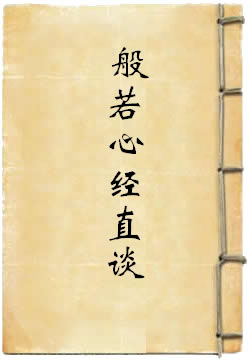 般若心经直谈